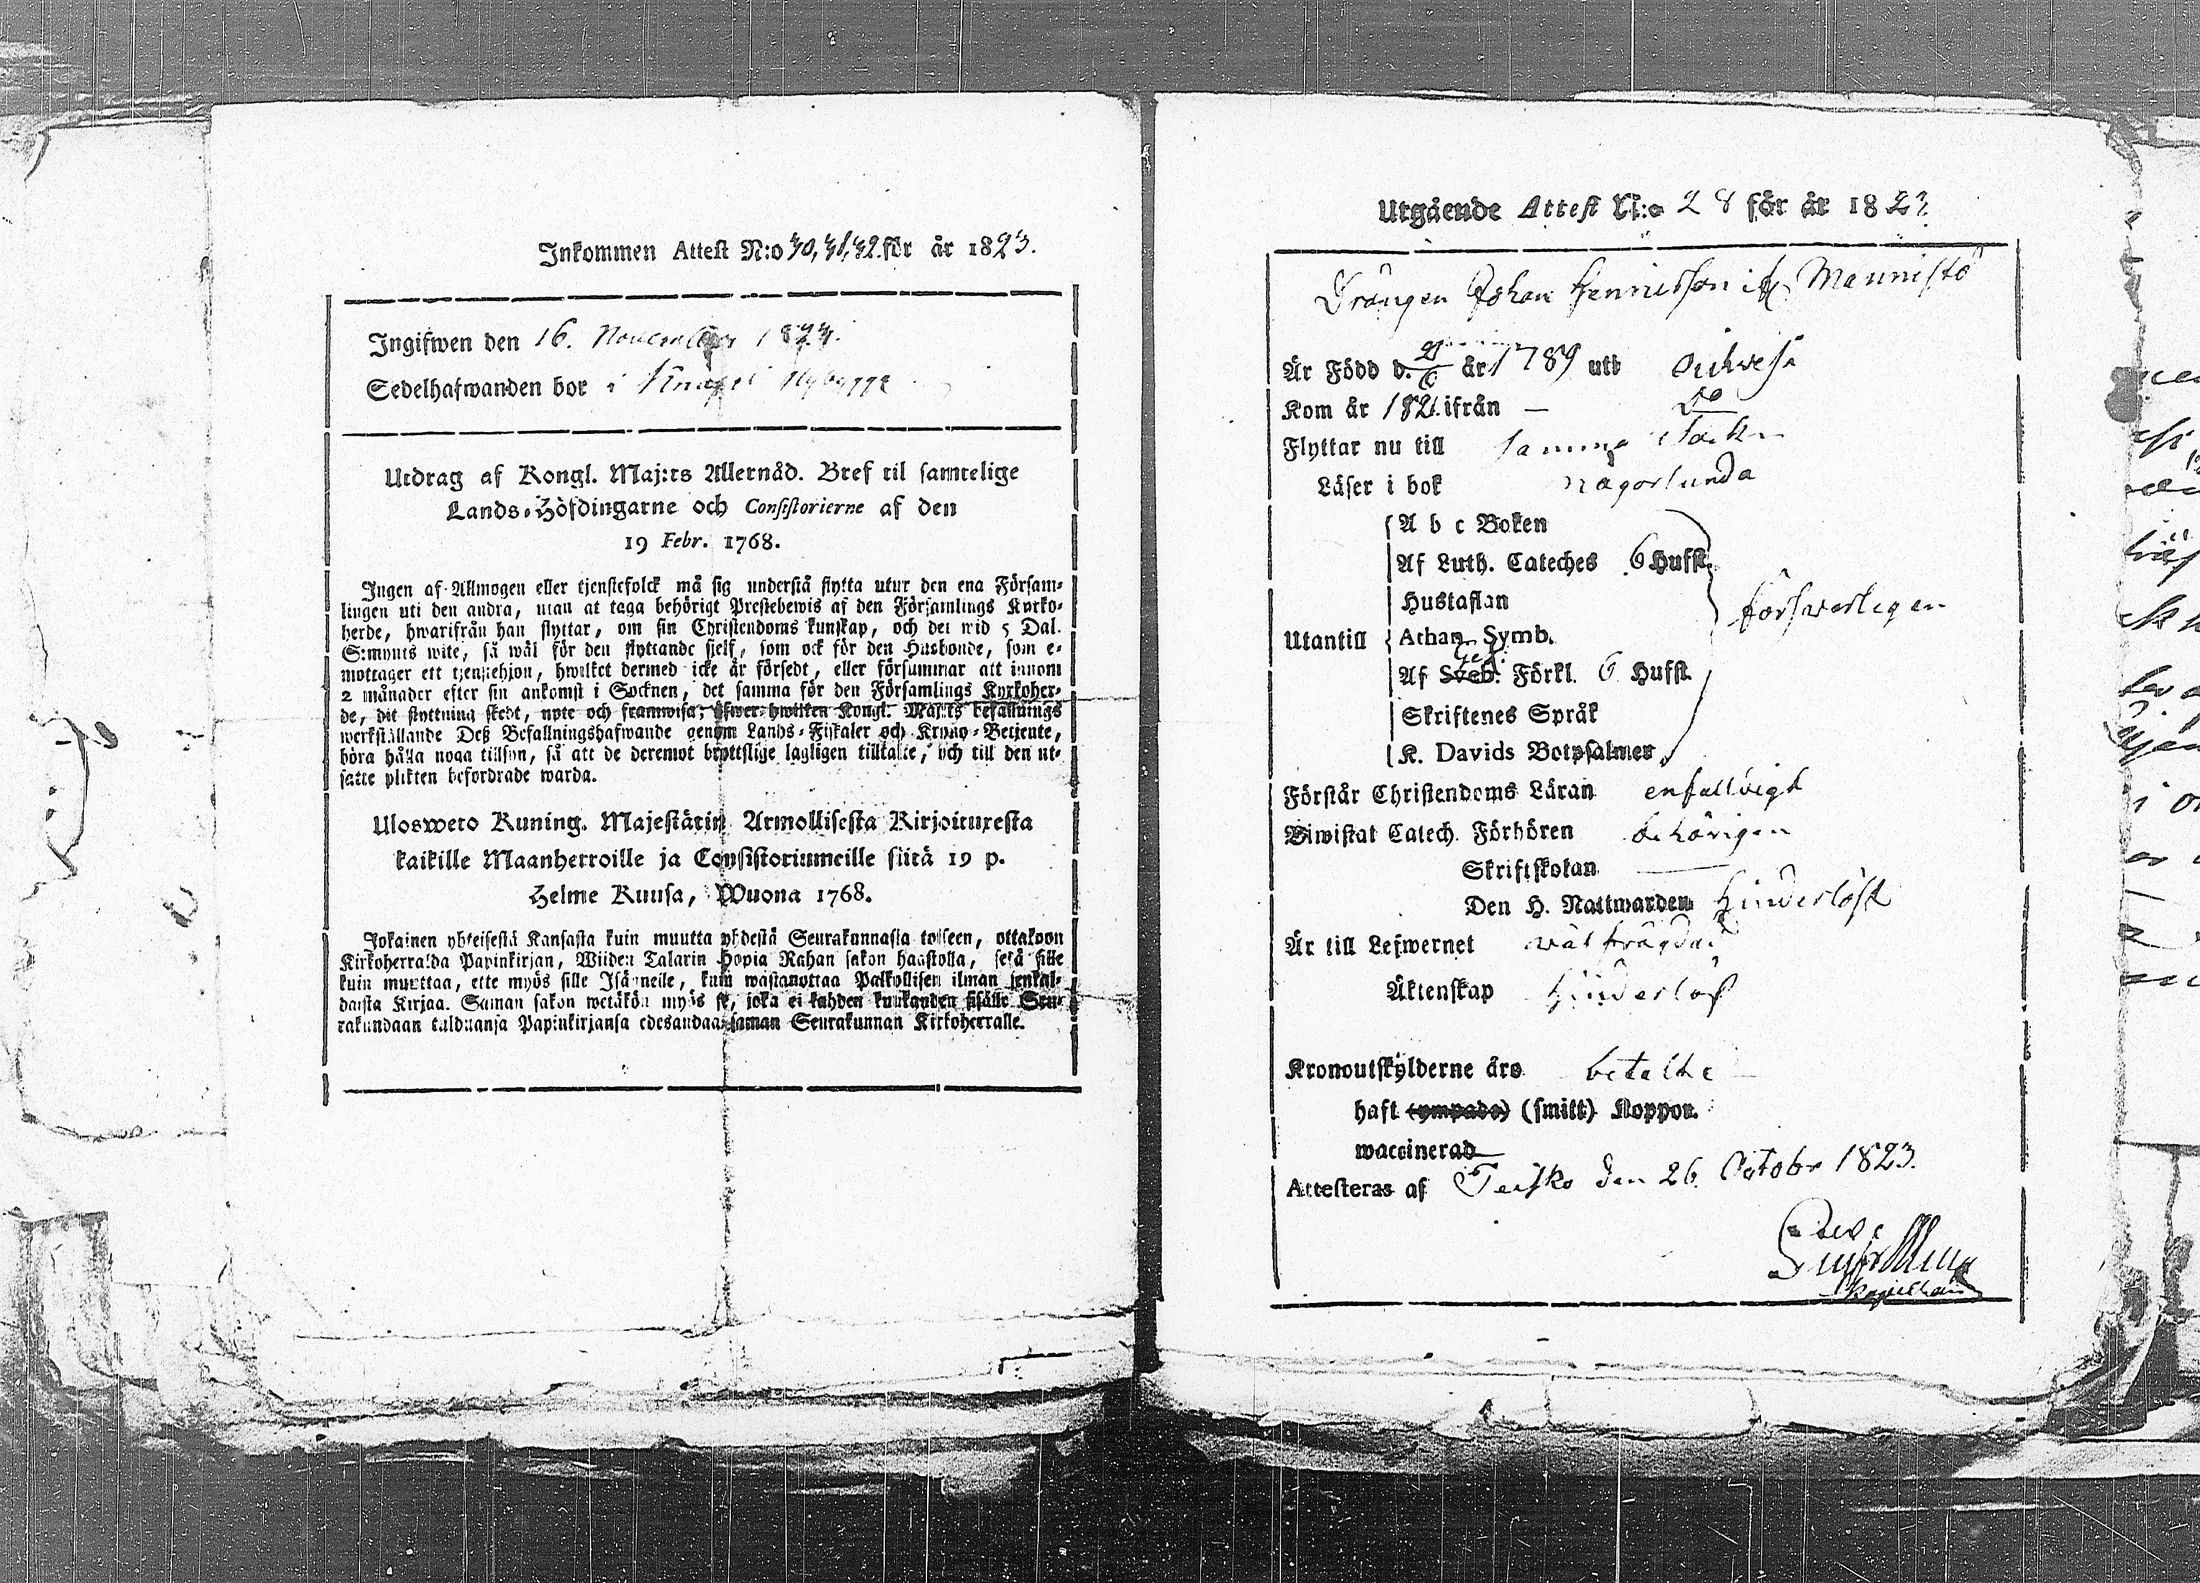 Inkommen Attest N:o 30, 31, 32. för år 1823.
Ingifwen den 16. November 1823.
Sedelhafwanden bor i Nybygge
Utdrag af Kongl. Maj:ts Allernåd. Bref til samtelige
Lands-Höfdingarne och Consistorierne af den
19 Febr. 1768.
Ingen af Allmogen eller tjenstefolck må sig understå flytta utur den ena Försam-
lingen uti den andra, utan at taga behörigt Prestebewis af den Församlings Kyrko-
herde, hwarifrån han flyttar, om sin Christendoms kunskap, och det wid 5 Dal.
S:mynts wite, så wäl för den flyttande sjelf, som ock för den Husbonde, som e-
mottager ett tjenstehjon, hwilket dermed icke är försedt, eller försummar att innom
2 månader efter sin ankomst i Socknen, det samma för den Församlings Kyrkoher-
de, dit flyttning skedt, upte och framwisa; öfwer hwilken Kongl. Maj:ts befallnings
werkställande Deß Befallningshafwande genom Lands-Fiskaler och Krono-Betjente,
böra hålla noga tillsyn, så att de deremot brottslige lagligen tilltalte, och till den ut-
satte plikten befordrade warda.
Ulosweto Kuning. Majestätin Armollisesta Kirjoituxesta
kaikille Maanherroille ja Consistoriumeille siitä 19 p.
Helme Kuusa, Wuona 1768.
Jokainen yhteisestä Kansasta kuin muutta yhdestä Seurakunnasta toiseen, ottakoon
Kirkoherralda Papinkirjan, Wiiden Talarin Hopia Rahan sakon haastolla, setä sille
kuin muuttaa, ette myös sille Isänneile, kuin wastanottaa Palkollisen ilman senkal-
daista Kirjaa. Saman sakon wetäkön myös se, joka ei kahden kuukauden sisälle Seu-
rakundaan tulduanja Papinkirjansa edesandaa saman Seurakunnan Kirkoherralle.
Utgående Attest N:o 28 för år 1823
Drängen Johan Hennicsson if Mannistö
Är Född d. 21/6 år 1789 utt
Kom år 1821 ifrån — Do
Flyttar nu till samma
Läser i bok någorlunda
A b c Boken
Af Luth. Cateches 6 Hufst.
Hustaflan
försvarligen
Utantill Athan. Symb.
Af Sveb. Förkl. 6 Hufst.
Skriftenes Språk
K. Davids Botpsalmer
Förstår Christendoms Läran enfalldigt
Biwistat Catech. Förhören behörigen
Skriftskolan —
Den H. Nattwarden hinderlöst
Är till Lefwernet wälfrägdad
Äktenskap hinderlös
Kronoutskylderne äro betalte
haft (ympade) (smitt) Koppor.
waccinerad
Attesteras af Teisko den 26. October 1823.